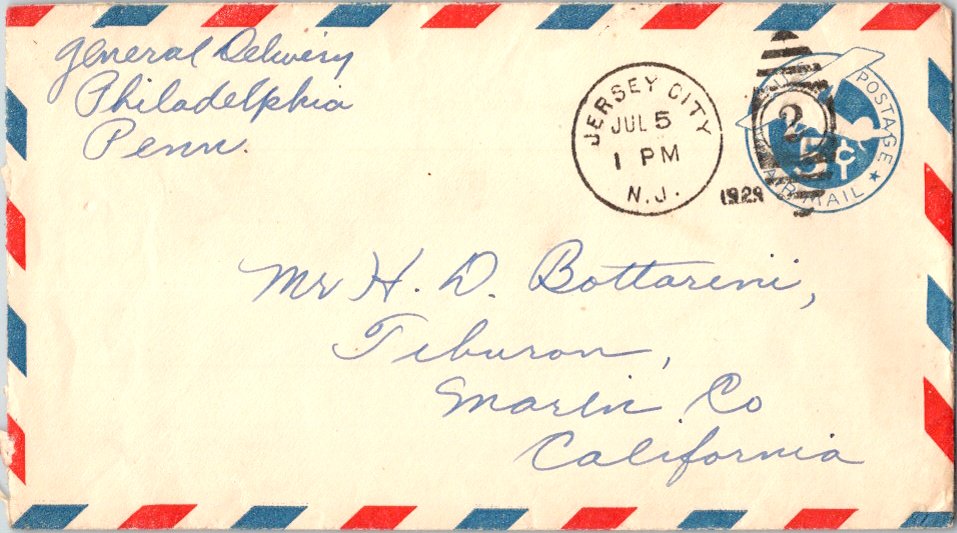 General Delivery
Philadelphia
Penn.
JERSEY CITY
JUL 5
1 PM
N.J.
1929
2
POSTAGE
5¢
AIR MAIL
Mr H. D. Bottarini,
Tiburon,
Marin Co
California